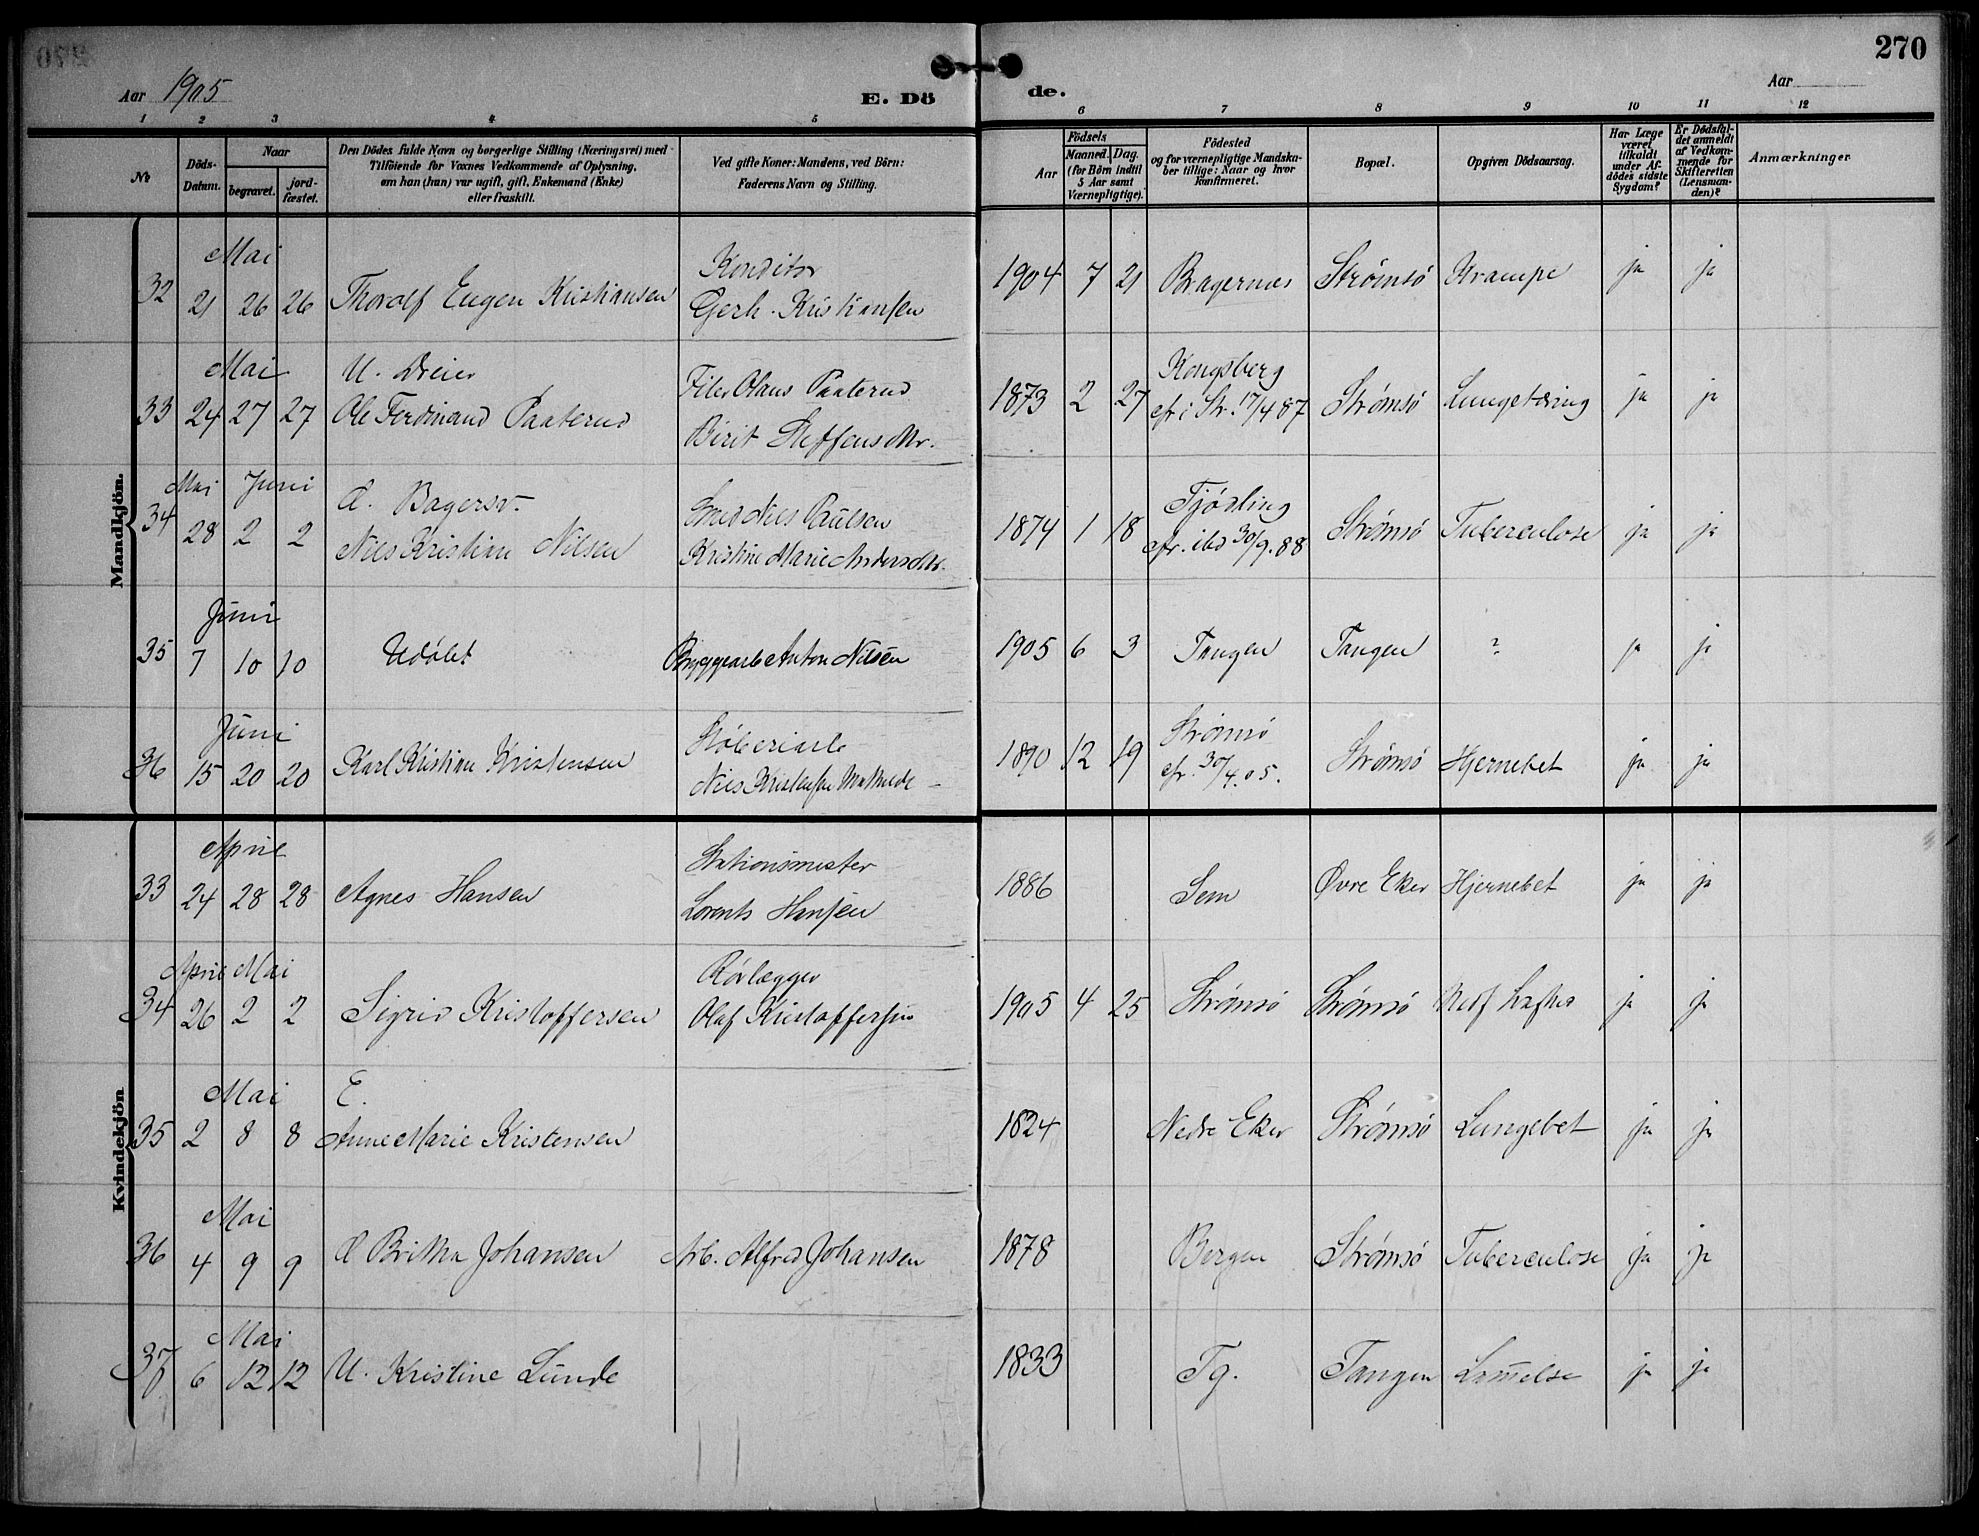 270
Aar 1905
E. Dö
de.
Aar
1 2 3 4 5 6 7 8 9 10 11 12
№
Döds-Datum.
Naar
begravet.
jord-fæstet.
Den Dödes fulde Navn og borgerlige Stilling (Næringsvei) med
Tilföiende for Voxnes Vedkommende af Oplysning,
om han (hun) var ugift, gift, Enkemand (Enke)
eller fraskilt.
Ved gifte Koner: Mandens, ved Börn:
Faderens Navn og Stilling.
Födsels
Aar
Maaned. Dag.
(for Börn indtil
5 Aar samt
Værnepligtige).
Födested
og for værnepligtige Mandska-
ber tillige: Naar og hvor
konfirmeret.
Bopæl.
Opgiven Dödsaarsag.
Har Læge
været
tilkaldt
under Af-
dödes sidste
Sygdom?
Er Dödsfal-
det anmeldt
af Vedkom-
mende for
Skifteretten
(Lensman-
den)?
Anmærkninger
Mandkjön.
Mai Konditor
32 21 26 26 Thorolf Eugen Kristiansen Gerh. Kristiansen 1904 7 21 Bragernes Strømsø Krampe ja ja
Mai U. Dreier Filer Olaus Paaterud Kongsberg
33 24 27 27 Ole Ferdinand Paaterud Birit Steffensdtr. 1873 2 27 cfr i Str. 17/4 87 Strømsø Lungetæring ja ja
Mai Juni Bagersv. Smed Nils Paulsen Fjødling
34 28 2 2 Nils Kristian Nilsen Kristine Marie Andersdtr. 1874 1 18 cfr. ibd 30/9. 88 Strømsø Tuberculose ja ja
Juni
35 7 10 10 Udøbt Bryggearb Anton Nilsen 1905 6 3 Tangen Tangen ? ja ja
Juni Støberiarb Strømsø
36 15 20 20 Karl Kristian Kristensen Nils Kristensen 1890 12 19 cfr. 30/4. 05. Strømsø Hjernebet ja ja
Kvindekjön
April Stationsmester
33 24 28 28 Agnes Hansen Lorents Hansen 1886 Sem Øvre Eker Hjernebet ja ja
April Mai Rørlægger
34 26 2 2 Sigrid Kristoffersen Olaf Kristoffersen 1905 4 25 Strømsø Strømsø ja ja
Mai E.
35 2 8 8 Anne Marie Kristensen 1824 Nedre Eker Strømsø Lungebet ja ja
Mai
36 4 9 9 Britha Johansen Arb. Alfred Johansen 1878 Bergen Strømsø Tuberculose ja ja
Mai
37 6 12 12 U. Kristine Lunde 1833 Tg. Tangen Lam̅else ja ja